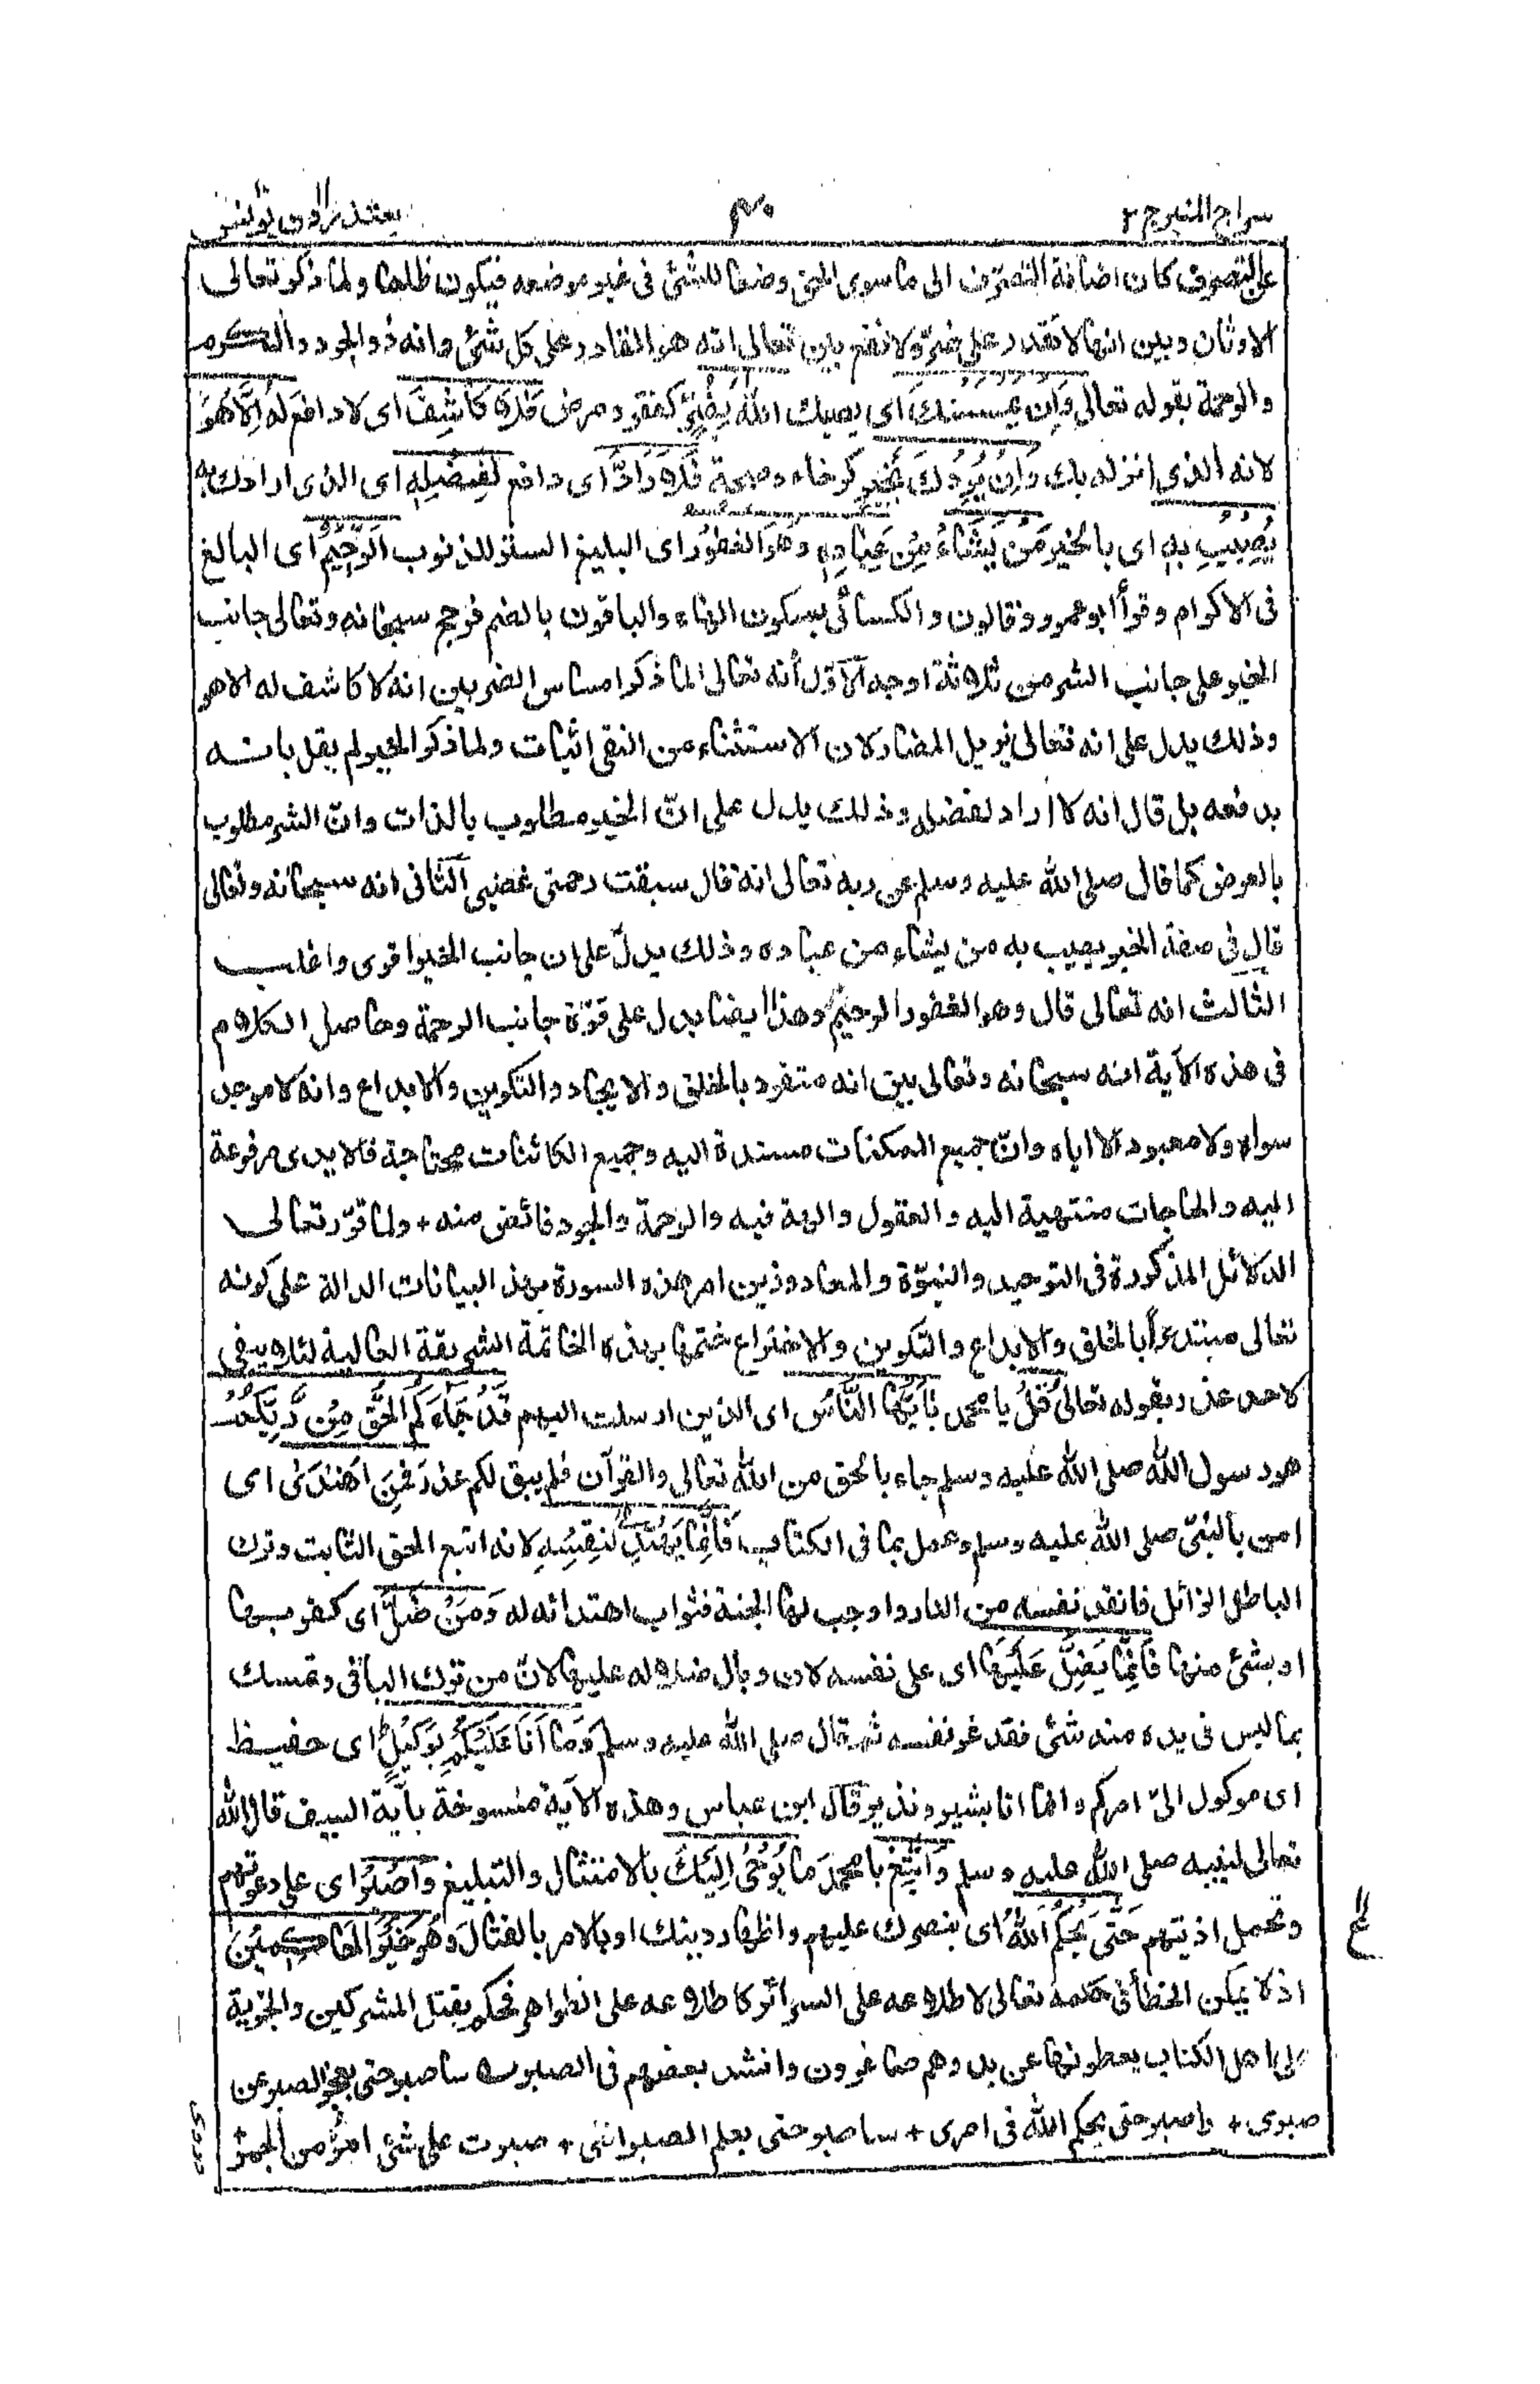 سراج المنیر ج ۲
۴۰
یعتذرون یونس
عن التصرف کان اضافة التصرف الی ما سوی الحق وضعا للشئ فی غیر موضعه فیکون ظلما ولما ذکر تعالی
الاوثان وبین انها لا تقدر علی ضرّ ولا نفع بین تعالی انه هو القادر علی کل شئ وانه ذو الجود والکرم
والرحمة بقوله تعالی وَاِن یمسسك ای یصیبك اللهُ بِضُرٍّ کفقر ومرض فَلَا کَاشِفَ ای لا دافع لَهُ اِلَّا هُوَ
لانه الذی انزله بك وَاِنْ یُرِدْكَ بِخَیْرٍ کرخاء وصحة فَلَا رَادَّ ای دافع لِفَضْلِهٖ ای الذی ارادك به
یُصِیْبُ بِهٖ ای بالخیر مَنْ یَّشَآءُ مِنْ عِبَادِهٖ وَهُوَ الْغَفُوْرُ ای البلیغ الستر للذنوب الرَّحِیْمُ ای البالغ
فی الاکرام وقرأ ابو عمرو وقالون والکسائی بسکون الهاء والباقون بالضم فرجح سبحانه وتعالی جانب
الخیر علی جانب الشر من ثلاثة اوجه الاول أنه تعالی لما ذکر امساس الضر بین انه لا کاشف له الا هو
وذلك یدل علی انه تعالی یزیل المضار لان الاستثناء من النفی اثبات ولما ذکر الخیر لم یقل بانه
یدفعه بل قال انه لا راد لفضله وذلك یدل علی انّ الخیر مطلوب بالذات وانّ الشر مطلوب
بالعرض کما قال صلی الله علیه وسلم عن ربه تعالی انه قال سبقت رحمتی غضبی الثانی انه سبحانه وتعالی
قال فی صفة الخیر یصیب به من یشاء من عباده وذلك یدلّ علی ان جانب الخیر اقوی واغلب
الثالث انه تعالی قال وهو الغفور الرحیم وهذا ایضا یدل علی قوّة جانب الرحمة وحاصل الکلام
فی هذه الآیة انه سبحانه وتعالی بین انه متفرد بالخلق والایجاد والتکوین والابداع وانه لا موجد
سواه ولا معبود الا ایاه وانّ جمیع الممکنات مستندة الیه وجمیع الکائنات محتاجة فالایدی مرفوعة
الیه والحاجات منتهیة الیه والعقول والهة فیه والرحمة والجود فائض منه + ولما قرّر تعالی
الدلائل المذکورة فی التوحید والنبوّة والمعاد وزین امر هذه السورة بهذه البیانات الدالة علی کونه
تعالی مبتدءًا بالخلق والابداع والتکوین والاختراع ختمها بهذه الخاتمة الشریفة العالیة لئلا یبقی
لاحد عذر بقوله تعالی قُلْ یا محمد یٰٓاَیُّهَا النَّاسُ ای الذین ارسلت الیهم قَدْ جَآءَكُمُ الْحَقُّ مِنْ رَّبِّكُمْ
هو رسول الله صلی الله علیه وسلم جاء بالحق من الله تعالی والقرآن فلم یبق لکم عذر فَمَنِ اهْتَدٰی ای
امن بالنبیّ صلی الله علیه وسلم وعمل بما فی الکتاب فَاِنَّمَا یَهْتَدِیْ لِنَفْسِهٖ لانه اتبع الحق الثابت وترك
الباطل الزائل فانقذ نفسه من النار واوجب لها الجنة فثواب اهتدائه له وَمَنْ ضَلَّ ای کفر بها
او بشئ منها فَاِنَّمَا یَضِلُّ عَلَیْهَا ای علی نفسه لان وبال ضلاله علیها لانّ من ترك الباقی وتمسك
بما لیس فی یده منه شئ فقد غر نفسه ثم قال صلی الله علیه وسلم وَمَآ اَنَا عَلَیْكُمْ بِوَكِیْلٍ ای حفیظ
ای موکول الیّ امرکم وانما انا بشیر ونذیر قال ابن عباس وهذه الآیة منسوخة بآیة السیف قال الله
تعالی لنبیه صلی الله علیه وسلم وَاتَّبِعْ یا محمد مَا یُوْحٰٓی اِلَیْكَ بالامتثال والتبلیغ وَاصْبِرْ ای علی دعوتهم
وتحمل اذیتهم حَتّٰی یَحْكُمَ اللهُ ای بنصرك علیهم واظهار دینك او بالامر بالقتال وَهُوَ خَیْرُ الْحَاكِمِیْنَ
اذ لا یمکن الخطأ فی حکمه تعالی لاطلاعه علی السرائر کاطلاعه علی الظواهر فحکم بقتل المشرکین والجزیة
علی اهل الکتاب یعطونها عن ید وهم صاغرون وانشد بعضهم فی الصبر سه ساصبر حتی یعجز الصبر عن
صبری + واصبر حتی یحکم الله فی امری + ساصبر حتی یعلم الصبر اننی + صبرت علی شئ امرُّ من الجمر
ع